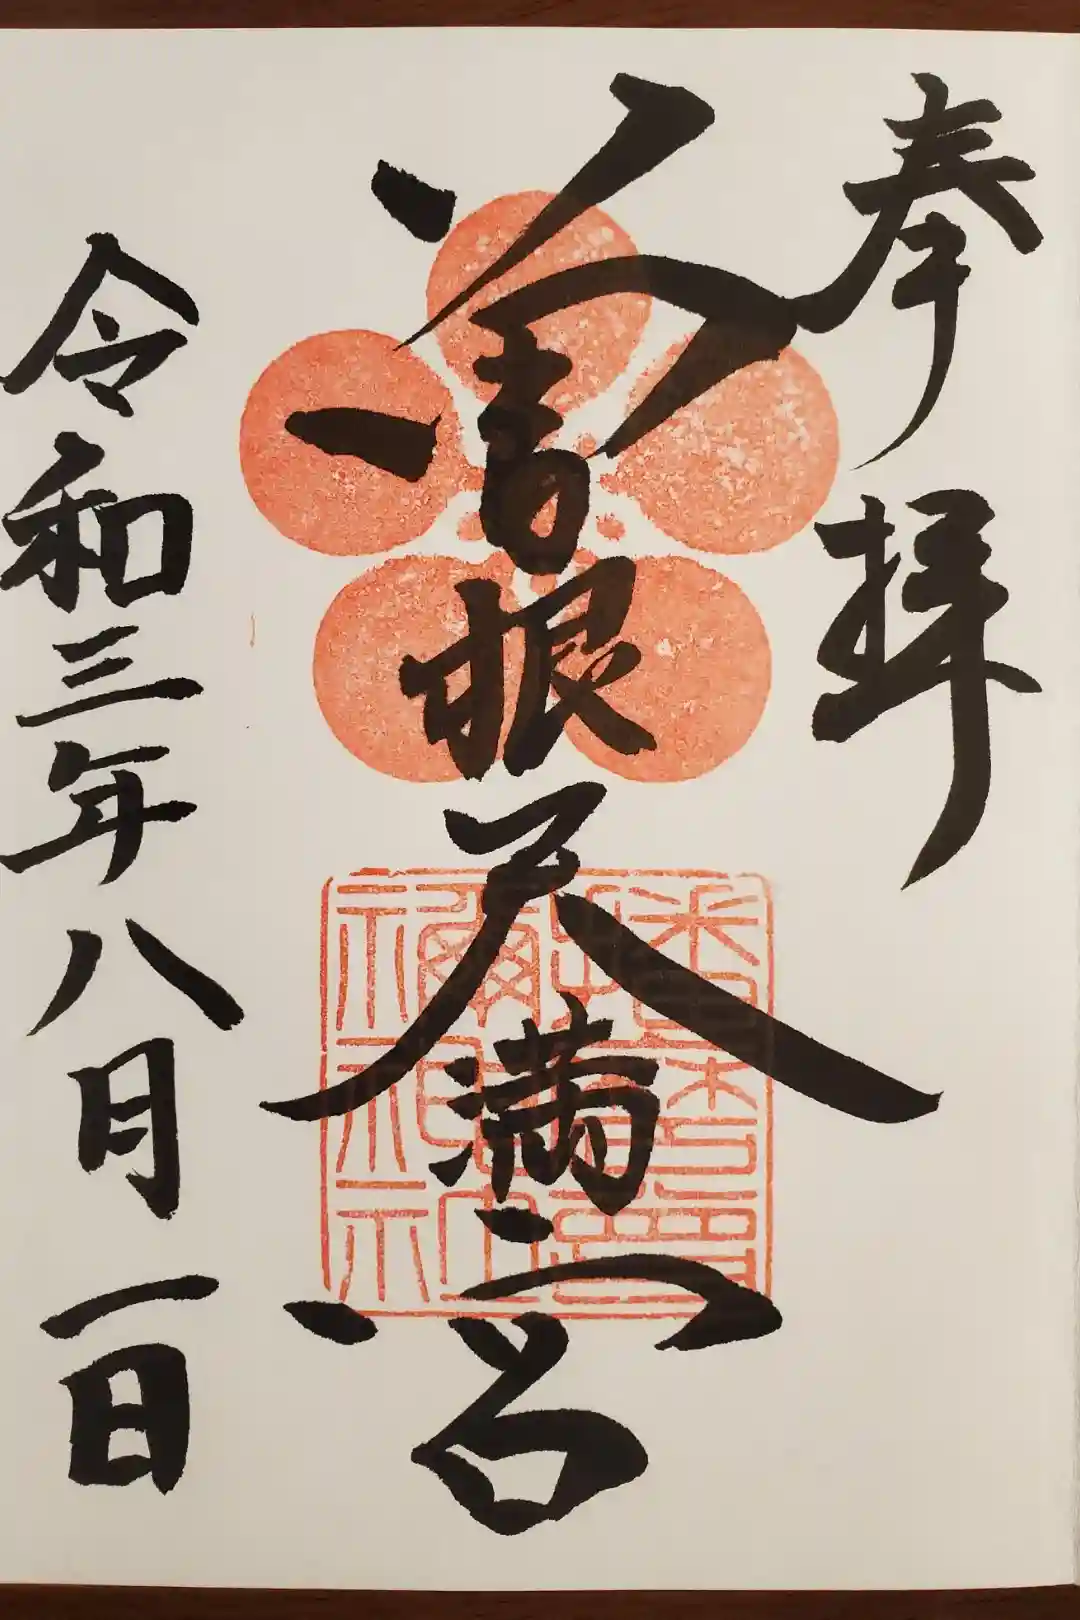 奉拝
曽根天満宮
令和三年八月一日